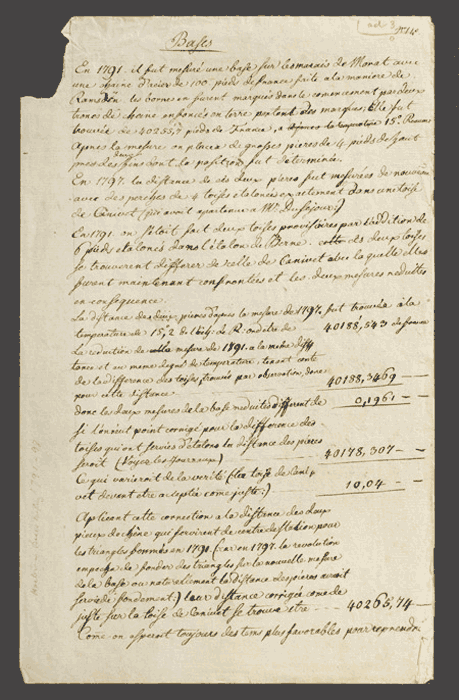 Bases
En 1791. il fut mesuré une base sur les marais de Morat avec
une chaine d'acier de 100 pieds de france faite a la maniere de
Ramsden. les bornes en furent marqués dans le comencement par deux
troncs de chene enfoncés en terre portant des marques. Elle fut
trouvée de 40255,7 pieds de France, a 15° Reaum
Apres la mesure on placa de grosses pierres de 4 pieds de haut
pres des fins dont la position fut determinée.
En 1797. la distance de ces deux pieres fut mesurées de nouveau
avec des perches de 4 toises etalonées exactement dans une toise
de Canivet (qui avoit apartenu a Mr. Dusejour.)
En 1791. on s'etoit fait deux toises provisoires par l'addition de
6 pieds etalonés dans l'etalon de Berne. ces deux toises
se trouverent differer de celle de Canivet avec la quelle elles
furent maintenant confrontées et les deux mesures reduites
en consequence.
La distance des deux pieres d'apres la mesure de 1797. fut trouvée à la
temperature de 15,2 de R. on dit de — 40188,543 de france
La reduction de mesure de 1791. a la meme dis
tance et au meme degré de temperature, tenant conte
de la difference des toises trouvée par observation, done
pour cette distance. 40188,3469 —
donc les deux mesures de la base reduites different de 0,1961 —
Si l'on eut point corrigé pour la difference des
toises qui ont servies d'etalons la distance des pieres
seroit (Voyez les Journaux) 40178,307 —
Ce qui varieroit de la verité (la toise de Cani
vet devant etre acceptée come juste.) 10,04 —
Aplicant cette correction a la distance des deux
pieux de chene que servirent de centre de station pour
les triangles formés en 1791 (car en 1797. la revolution
empecha de fonder des triangles sur la nouvelle mesure
de la base ou naturellement la distance des pieres auroit
servie de fondement.) leur distance corrigée come de
juste sur la toise de Canivet se trouve etre — 40265,74 —
Come on esperoit toujours des tems plus favorables pour reprendre